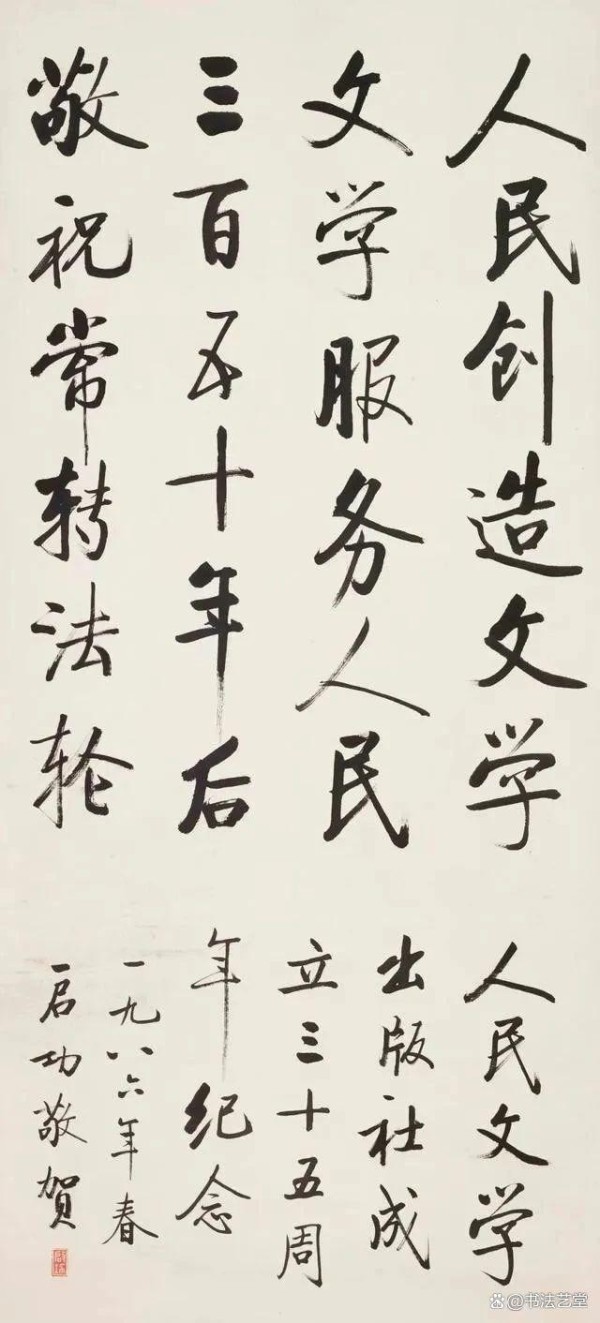 人民创造文学
文学服务人民
三百五十年后
敬祝常转法轮
人民文学
出版社成
立三十五周
年纪念
一九八六年春
启功敬贺
@书法艺堂